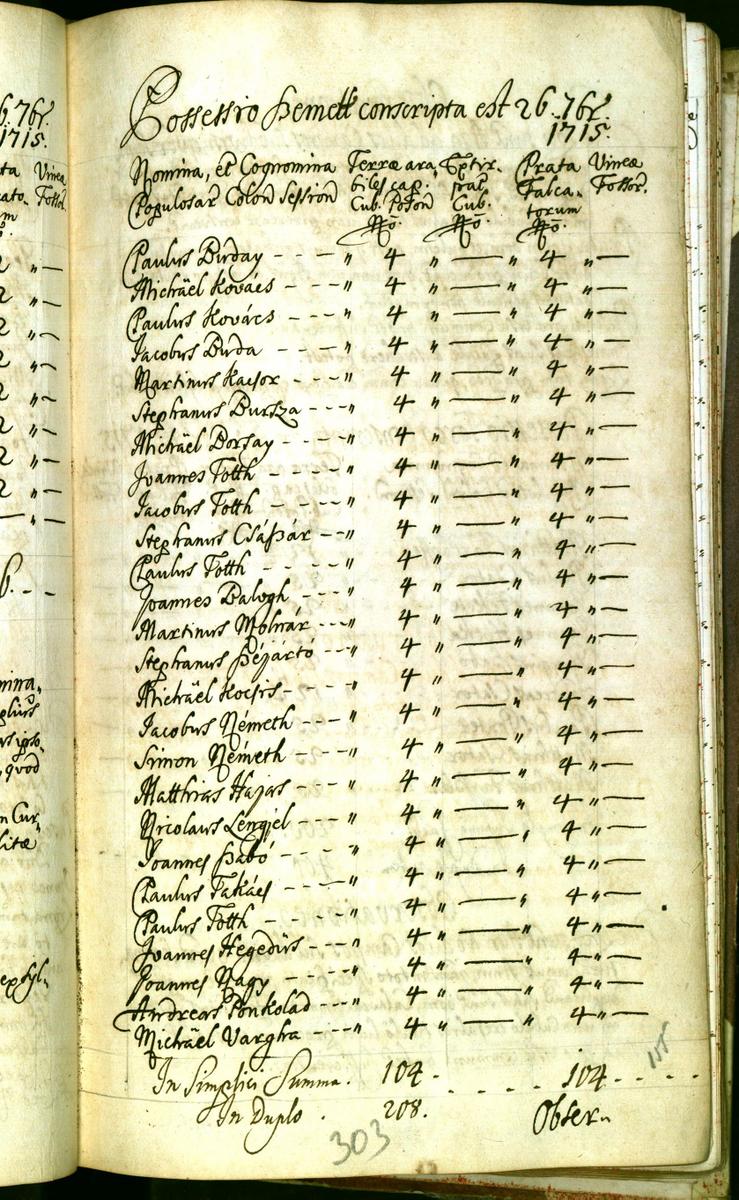 Possessio Þemett conscripta est 26. 7br.
1715.
Nomina, et Cognomina Terræ ara, Extir. Prata Vineæ
Populosar Colon Session biles cap. pat. Falca- Fossor.
Cub. Poson Cub. torum
No. No. No.
Paulus Birday - - - " 4 " — " 4 " —
Michäel Kovács - - - " 4 " — " 4 " —
Paulus Kovács - - - " 4 " — " 4 " —
Jacobus Birda - - - " 4 " — " 4 " —
Martinus Kacsor - - - " 4 " — " 4 " —
Stephanus Bursza - - - " 4 " — " 4 " —
Michäel Borsay - - - " 4 " — " 4 " —
Joannes Totth - - - " 4 " — " 4 " —
Jacobus Totth - - - " 4 " — " 4 " —
Stephanus Csáþár - - " 4 " — " 4 " —
Paulus Totth - - - - " 4 " — " 4 " —
Joannes Balogh - - - " 4 " — " 4 " —
Martinus Molnár - - - " 4 " — " 4 " —
Stephanus Þéjártó - - - " 4 " — " 4 " —
Michäel Kocsis - - - - " 4 " — " 4 " —
Jacobus Németh - - - " 4 " — " 4 " —
Simon Németh - - - " 4 " — " 4 " —
Matthias Hajas - - - " 4 " — " 4 " —
Nicolaus Lengjel - - - " 4 " — " 4 " —
Joannes Þabó - - - - " 4 " — " 4 " —
Paulus Takács - - - - " 4 " — " 4 " —
Paulus Totth - - - - " 4 " — " 4 " —
Joannes Hegedüs - - - " 4 " — " 4 " —
Joannes Nagy - - - - " 4 " — " 4 " —
Andreas Ponkolad - - - " 4 " — " 4 " —
Michäel Vargha - - - " 4 " — " 4 " —
In Simplici Summa. 104 - - - - - 104 - - - -
In Duplo . 208. Obser-
303